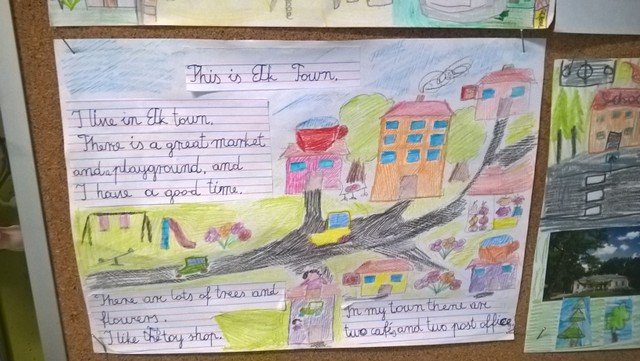 This is Elk Town.
I live in Elk town.
There is a great market
and a playground, and
I have a good time.
There are lots of trees and
flowers.
I like the toy shop.
In my town there are
two cafes and two post offices